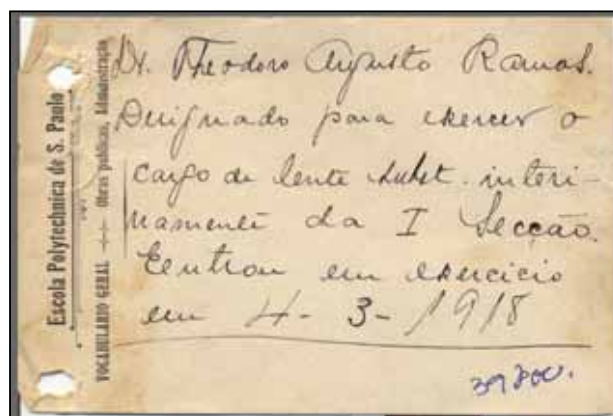 Escola Polytechnica de S. Paulo
VOCABULARIO GERAL -- Obras publicas, Administração
Dr. Theodoro Augusto Ramos.
Designado para exercer o
cargo de lente subst. interi-
namente da I Secção.
Eentrou em exercicio
em 4-3-1918